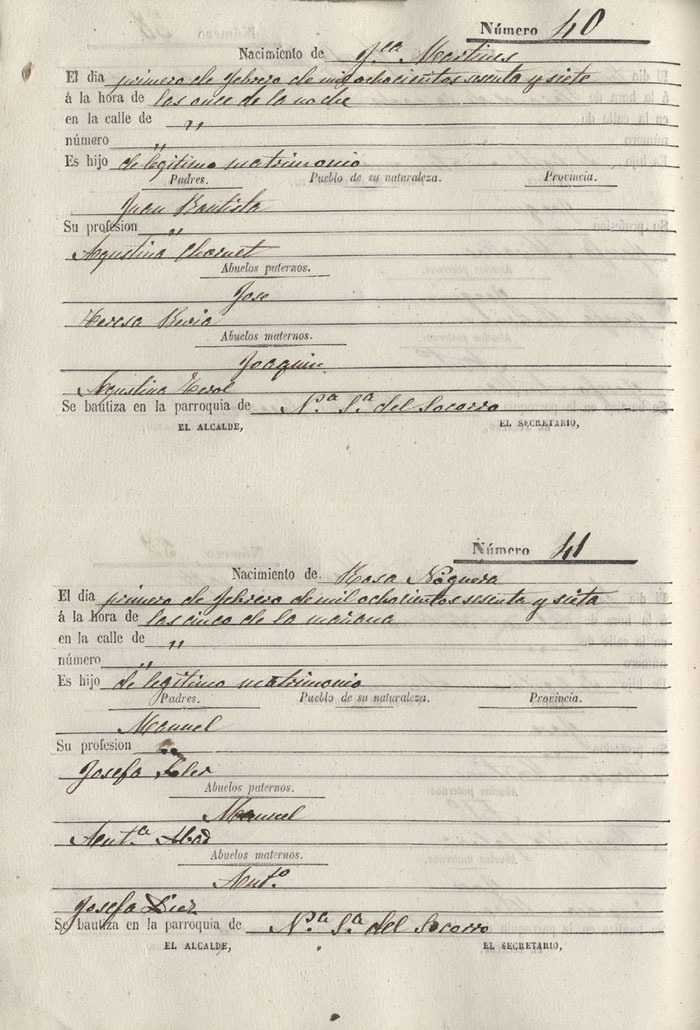 Número 40
Nacimiento de Fca Martines
El dia primero de febrero de mil ochocientos sesenta y siete
á la hora de las once de la noche
en la calle de "
número "
Es hijo de legitimo matrimonio
Padres. Pueblo de su naturaleza. Provincia.
Juan Bautista
Su profesion "
Agustina Chornet
Abuelos paternos.
Jose
Teresa
Abuelos maternos.
Joaquin
Agustina
Se bautiza en la parroquia de N.ª S.ª del Socorro
EL ALCALDE, EL SECRETARIO,
Número 41
Nacimiento de Rosa Noguera
El dia primero de febrero de mil ochocientos sesenta y siete
á la hora de las cinco de la mañana
en la calle de "
número "
Es hijo de legitimo matrimonio
Padres. Pueblo de su naturaleza. Provincia.
Manuel
Su profesion "
Josefa Soler
Abuelos paternos.
Manuel
Ant.ª Abad
Abuelos maternos.
Ant.º
Josefa Diez
Se bautiza en la parroquia de N.ª S.ª del Socorro
EL ALCALDE, EL SECRETARIO,